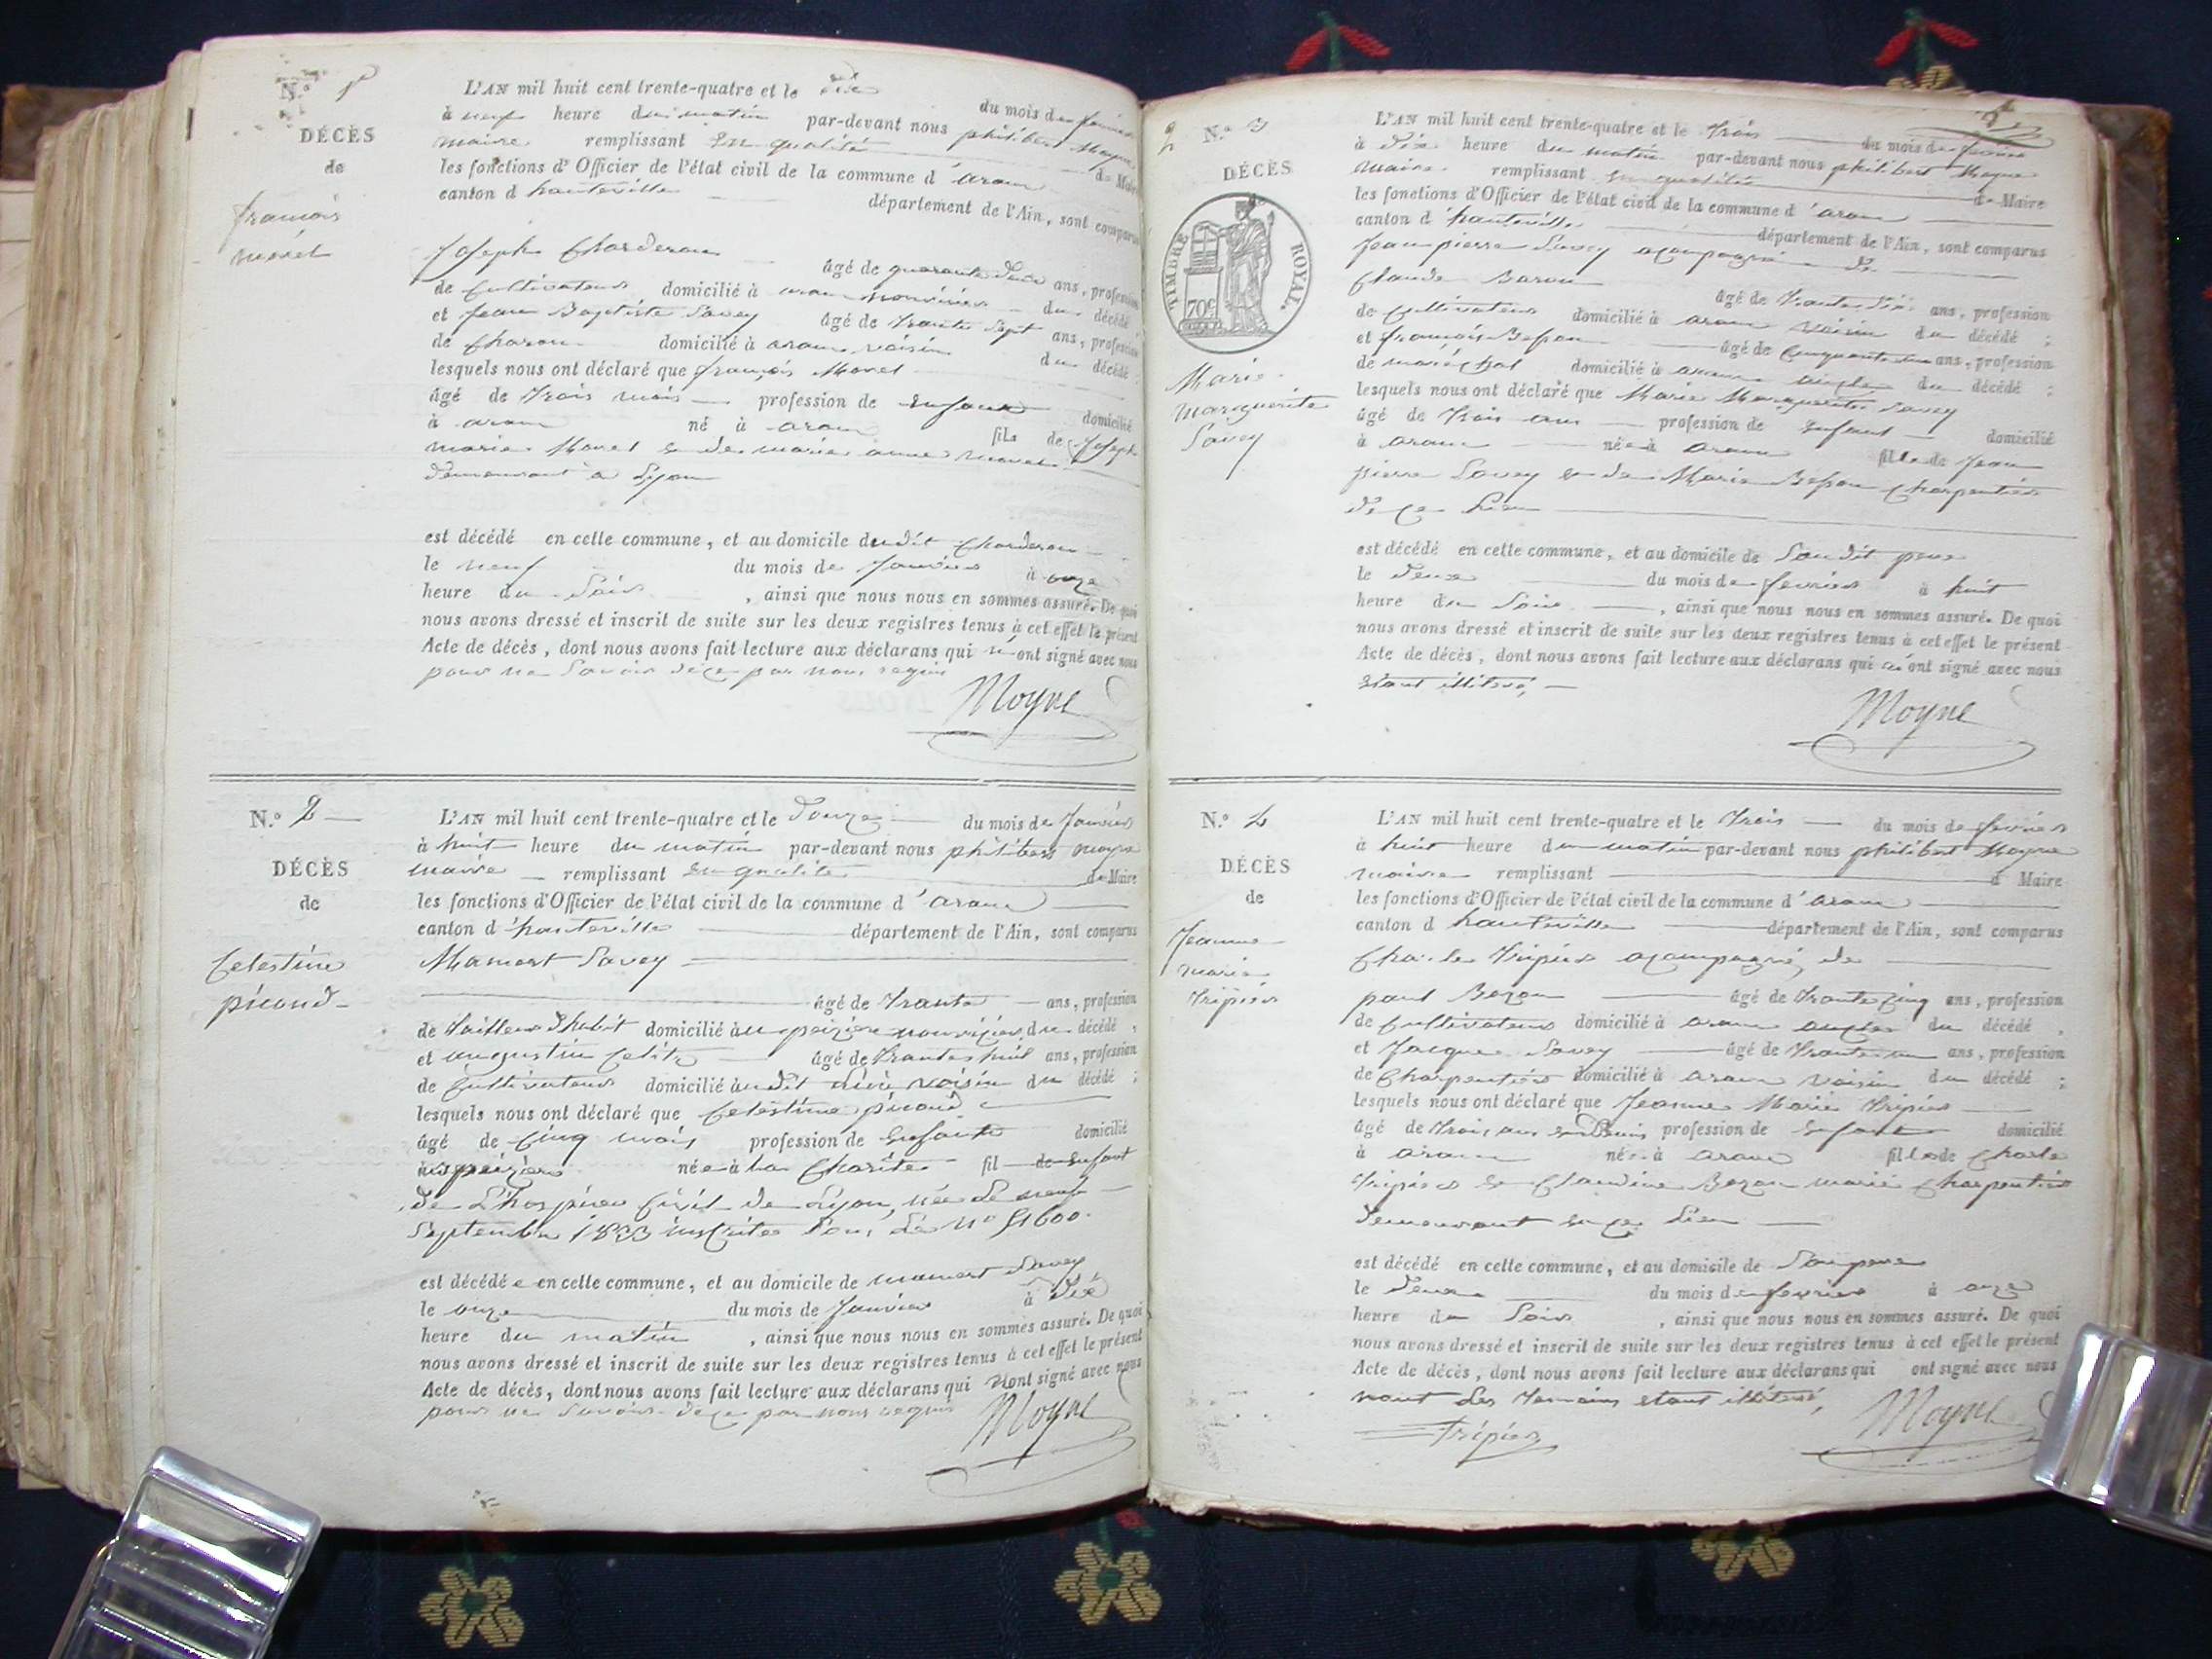 N.º 1
DÉCÈS
de
françois
morel
L'AN mil huit cent trente-quatre et le dix du mois de janvier
à neuf heure du matin par-devant nous philibert Moyne
maire remplissant en qualité de Maire
les fonctions d'Officier de l'état civil de la commune d'aranc
canton d hauteville département de l'Ain, sont comparus
Joseph Charderon âgé de quarante deux ans, profession
de Cultivateur domicilié à aranc nourricier du décédé
et Jean Baptiste Savey âgé de trante sept ans, profession
de Charon domicilié à aranc voisin du décédé
lesquels nous ont déclaré que françois Morel
âgé de trois mois profession de enfant domicilié
à aranc né à aranc fils de Joseph
marie Morel et de marie anne
demeurant à Lyon
est décédé en cette commune, et au domicile dudit Charderon
le neuf du mois de Janvier à onze
heure du soir, ainsi que nous nous en sommes assuré. De quoi
nous avons dressé et inscrit de suite sur les deux registres tenus à cet effet le présent
Acte de décès, dont nous avons fait lecture aux déclarans qui n'ont signé avec nous
pour ne savoir de ce par nous requis
Moyne
N.º 2
DÉCÈS
de
Celestine
picond
L'AN mil huit cent trente-quatre et le Douze du mois de Janvier
à huit heure du matin par-devant nous philibert moyne
maire remplissant en qualité de Maire
les fonctions d'Officier de l'état civil de la commune d'aranc
canton d'hauteville département de l'Ain, sont comparus
Mamert Savey
âgé de trante ans, profession
de tailleur d'habit domicilié nourricier du décédé,
et augustin âgé de trante huit ans, profession
de Cultivateur domicilié audit lieu voisin du décédé;
lesquels nous ont déclaré que Celestine picond
âgé de cinq mois profession de enfante domicilié
née à la Charité fil de enfant
de L'hospice Civil de Lyon, née le neuf
Septembre 1833 inscrite sous le N° 51600.
est décédée en cette commune, et au domicile de mamert Savey
le onze du mois de Janvier à dix
heure du matin, ainsi que nous nous en sommes assuré. De quoi
nous avons dressé et inscrit de suite sur les deux registres tenus à cet effet le présent
Acte de décès, dont nous avons fait lecture aux déclarans qui n'ont signé avec nous
pour ne savoir de ce par nous requis
Moyne
N.º 3
DÉCÈS
TIMBRE ROYAL.
70c
Marie
marguerite
Savey
L'AN mil huit cent trente-quatre et le trois du mois de fevrier
à dix heure du matin par-devant nous philibert Moyne
maire remplissant en qualité de Maire
les fonctions d'Officier de l'état civil de la commune d'aranc
canton d'hauteville département de l'Ain, sont comparus
Jean pierre Savey acompagné de
Claude Baron âgé de trante six ans, profession
de Cultivateur domicilié à aranc voisin du décédé;
et françois Besson âgé de Cinquante un ans, profession
de maréchal domicilié à aranc oncle du décédé;
lesquels nous ont déclaré que Marie Marguerite Savey
âgé de trois ans profession de enfant domicilié
à aranc née à aranc fille de Jean
pierre Savey et de Marie Besson Charpentier
de ce lieu
est décédé en cette commune, et au domicile de Son dit pere
le deux du mois de fevrier à huit
heure du Soir, ainsi que nous nous en sommes assuré. De quoi
nous avons dressé et inscrit de suite sur les deux registres tenus à cet effet le présent
Acte de décès, dont nous avons fait lecture aux déclarans qui n'ont signé avec nous
étant illitéré,
Moyne
N.º 4
DÉCÈS
de
Jeanne
marie
tripier
L'AN mil huit cent trente-quatre et le trois du mois de fevrier
à huit heure du matin par-devant nous philibert Moyne
maire remplissant d Maire
les fonctions d'Officier de l'état civil de la commune d'aranc
canton d hauteville département de l'Ain, sont comparus
Charles tripier acompagné de
paul Bozon âgé de trante Cinq ans, profession
de Cultivateur domicilié à aranc oncle du décédé,
et Jacque Savey âgé de trante un ans, profession
de Charpentier domicilié à aranc voisin du décédé;
lesquels nous ont déclaré que Jeanne Marie tripier
âgé de trois ans et demis profession de enfant domicilié
à aranc née à aranc fille de Charle
tripier et Claudine Bozon marié Charpentier
demeurant en ce lieu
est décédé en cette commune, et au domicile de Son pere
le deux du mois de fevrier à onze
heure du Soir, ainsi que nous nous en sommes assuré. De quoi
nous avons dressé et inscrit de suite sur les deux registres tenus à cet effet le présent
Acte de décès, dont nous avons fait lecture aux déclarans qui ont signé avec nous
nont les temoins etant illitéré,
Tripier
Moyne